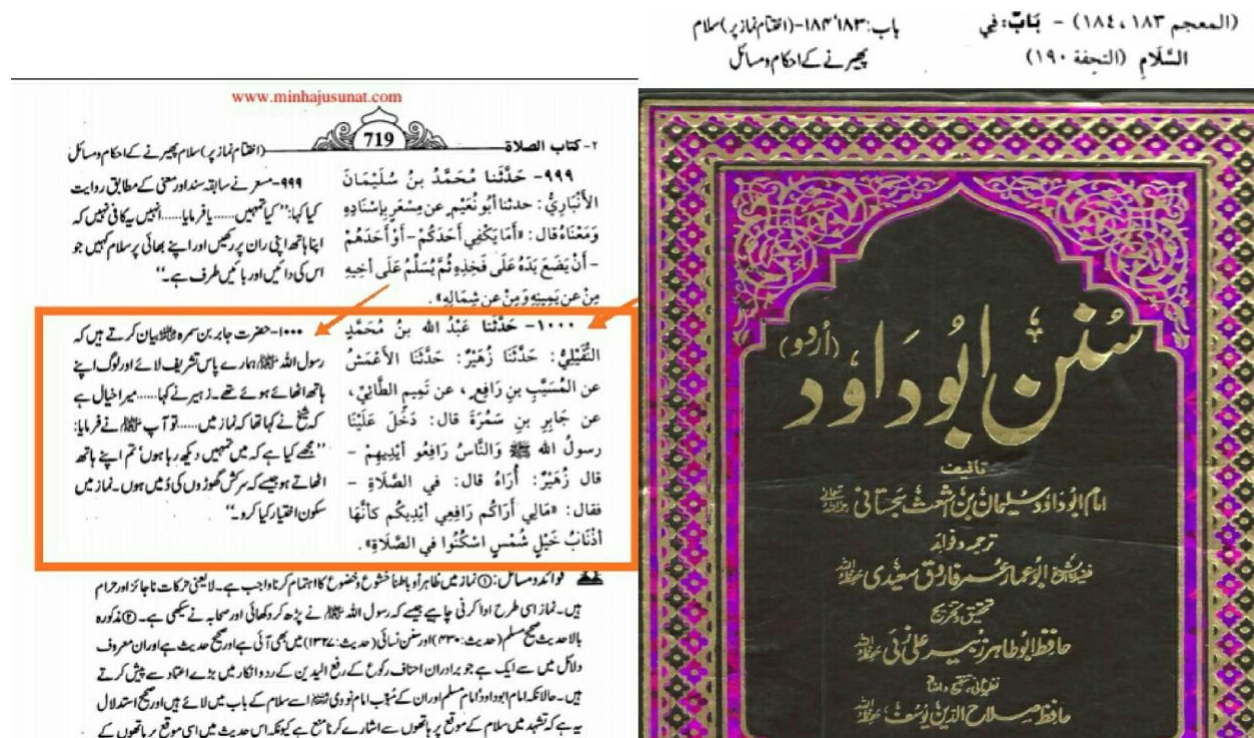 (المعجم ١٨٣، ١٨٤) - بَابٌ: في
السَّلَامِ (التحفة ١٩٠)
باب: ۱۸۳، ۱۸۴-(اختتام نماز پر) سلام
پھیرنے کے احکام ومسائل
www.minhajusunat.com
٢- كتاب الصلاة
719
(اختتام نماز پر) سلام پھیرنے کے احکام ومسائل
٩٩٩- حَدَّثَنا مُحَمَّدُ بنُ سُلَيْمَانَ
الأَنْبَارِيُّ: حدثنا أَبُو نُعَيْمٍ عن مِسْعَرٍ بِإِسْنَادِهِ
وَمَعْنَاهُ قال: «أَمَا يَكْفِي أَحَدَكُمْ - أَوْ أَحَدَهُمْ
- أَنْ يَضَعَ يَدَهُ عَلَى فَخِذِهِ ثُمَّ يُسَلِّمُ عَلَى أَخِيهِ
مِنْ عن يَمِينِهِ وَمِنْ عن شِمَالِهِ».
۹۹۹-مسعر نے سابقہ سند اور معنی کے مطابق روایت
کیا کہا: ’’کیا تمہیں......یا فرمایا......انہیں یہ کافی نہیں کہ
اپنا ہاتھ اپنی ران پر رکھیں اور اپنے بھائی پر سلام کہیں جو
اس کی دائیں اور بائیں طرف ہے۔‘‘
١٠٠٠- حَدَّثَنا عَبْدُ الله بنُ مُحَمَّدٍ
النُّفَيْلِيُّ: حَدَّثَنَا زُهَيْرٌ: حَدَّثَنَا الأَعْمَشُ
عن المُسَيَّبِ بنِ رَافِعٍ، عن تَمِيمٍ الطَّائِيِّ،
عن جَابِرِ بنِ سَمُرَةَ قال: دَخَلَ عَلَيْنَا
رسولُ الله ﷺ وَالنَّاسُ رَافِعُو أَيْدِيهِمْ -
قال زُهَيْرٌ: أُرَاهُ قال: في الصَّلَاةِ -
فقال: «مَالِي أَرَاكُم رَافِعِي أَيْدِيكُم كَأَنَّهَا
أَذْنَابُ خَيْلٍ شُمْسٍ اسْكُنُوا في الصَّلَاةِ».
۱۰۰۰-حضرت جابر بن سمرہ رضی اللہ عنہ بیان کرتے ہیں کہ
رسول اللہ ﷺ ہمارے پاس تشریف لائے اور لوگ اپنے
ہاتھ اٹھائے ہوئے تھے۔ زہیر نے کہا......میرا خیال ہے
کہ شیخ نے کہا تھا کہ نماز میں......تو آپ ﷺ نے فرمایا:
’’مجھے کیا ہے کہ میں تمہیں دیکھ رہا ہوں‘ تم اپنے ہاتھ
اٹھاتے ہو جیسے کہ سرکش گھوڑوں کی دُمیں ہوں۔ نماز میں
سکون اختیار کیا کرو۔‘‘
فوائد ومسائل: ① نماز میں ظاہراً و باطناً خشوع و خضوع کا اہتمام کرنا واجب ہے۔ لایعنی حرکات ناجائز اور حرام
ہیں۔ نماز اسی طرح ادا کرنی چاہیے جیسے کہ رسول اللہ ﷺ نے پڑھ کر دکھائی اور صحابہ نے سیکھی ہے۔ ② مذکورہ
بالا حدیث صحیح مسلم (حدیث: ۴۳۰) اور سنن نسائی (حدیث: ۱۳۲۷) میں بھی آئی ہے اور صحیح حدیث ہے اور ان معروف
دلائل میں سے ایک ہے جو برادران احناف رکوع کے رفع الیدین کے رد و انکار میں بڑے اعتماد سے پیش کرتے
ہیں۔ حالانکہ امام ابوداود‘ امام مسلم اور ان کے مُبَوِّب امام نووی رحمہ اللہ اسے سلام کے باب میں لائے ہیں اور صحیح استدلال
یہ ہے کہ تشہد میں سلام کے موقع پر ہاتھوں سے اشارے کرنا منع ہے کیونکہ اس حدیث میں اسی موقع پر ہاتھوں کے
سُنن ابُو دَاوُد (اُردو)
تالیف
امام ابوداود سلیمان بن اشعث سجستانی
ترجمہ وفوائد
ابوعمار عمر فاروق سعیدی
تحقیق وتخریج
حافظ ابوطاہر زبیر علی زئی
حافظ صلاح الدین یوسف